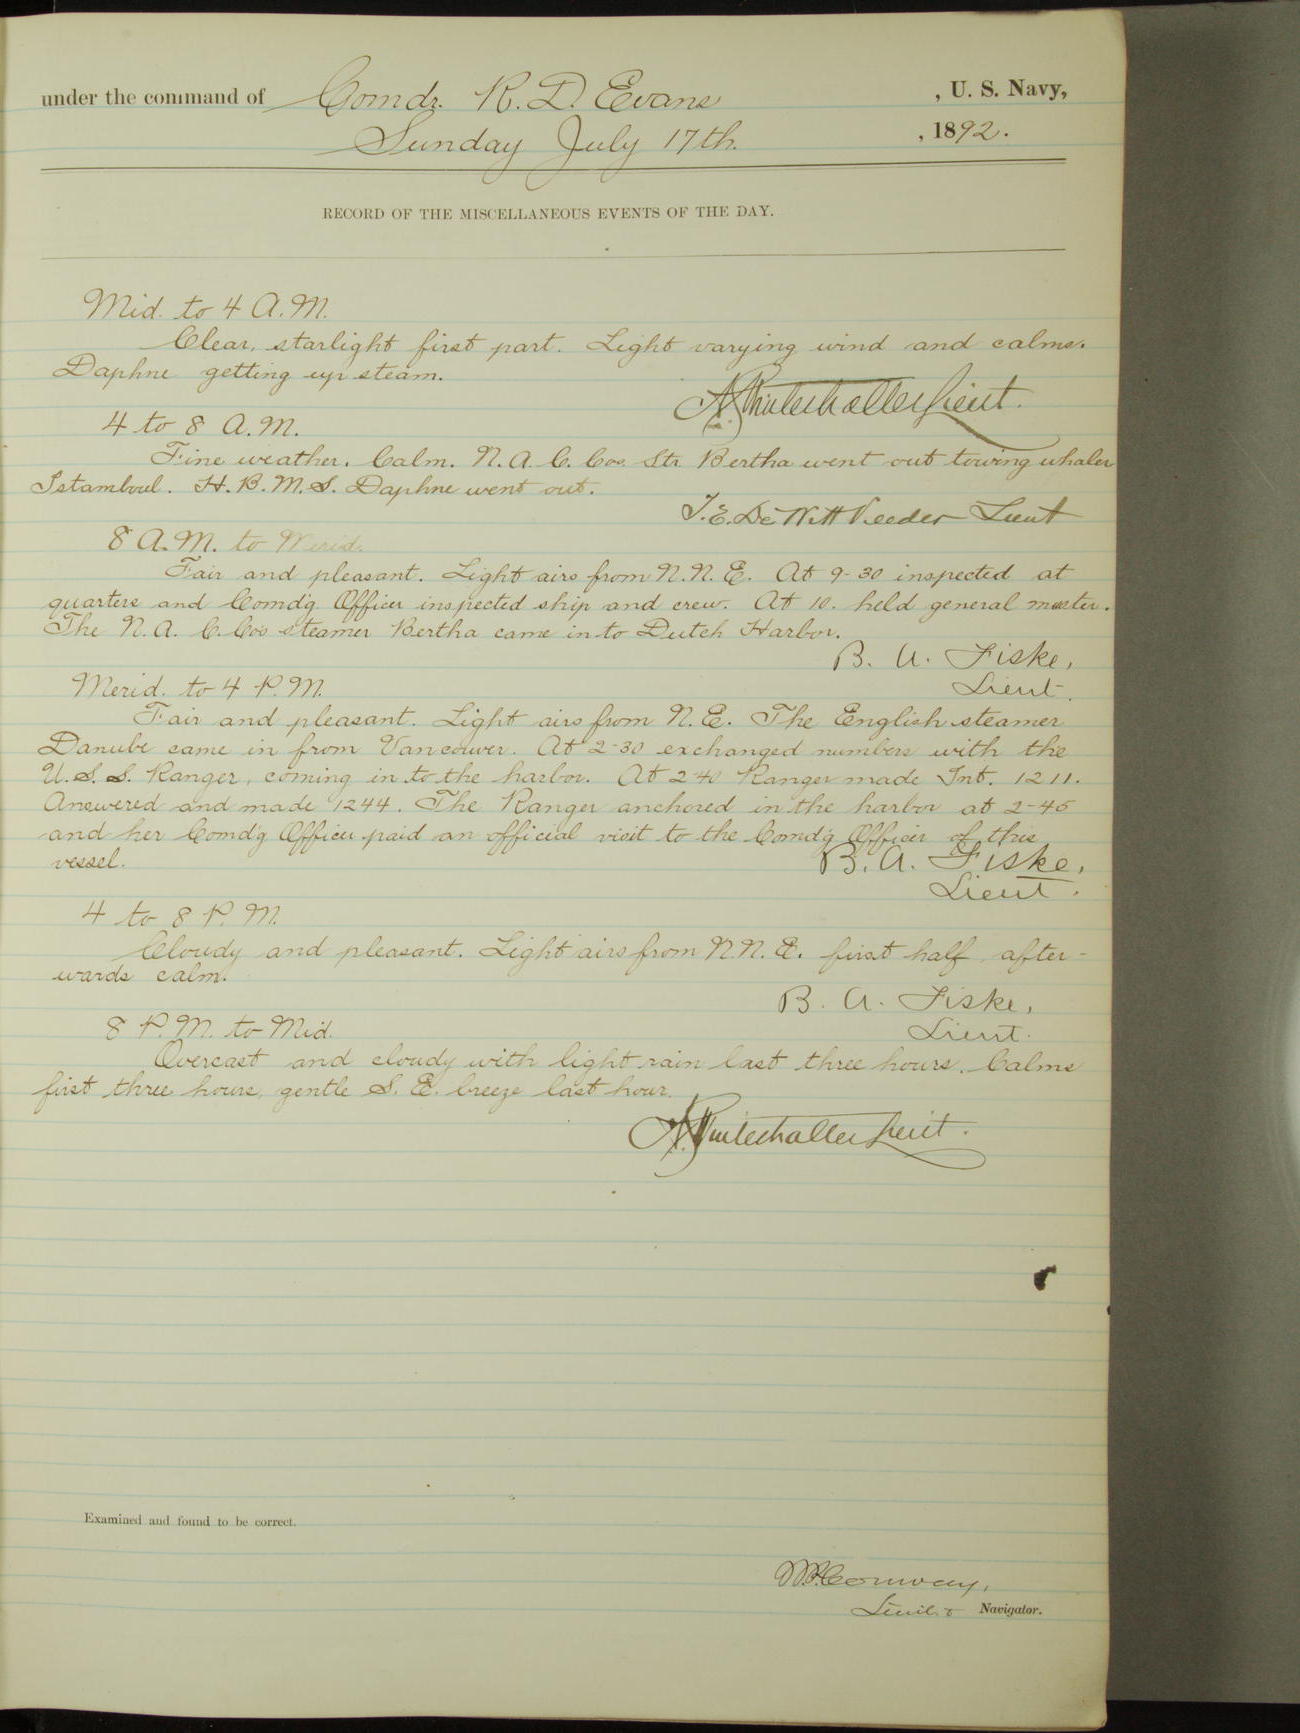 under the command of Comdr. R. D. Evans , U. S. Navy,
Sunday July 17th. , 1892.
RECORD OF THE MISCELLANEOUS EVENTS OF THE DAY.
Mid. to 4 A.M.
Clear, starlight first part. Light varying wind and calms.
Daphne getting up steam.
A. Winterhalter Lieut.
4 to 8 A.M.
Fine weather. Calm. N. A. C. Cos. Str. Bertha went out towing whaler
Istamboul. H. B. M. S. Daphne went out.
T. E. DeWitt Veeder Lieut
8 A.M. to Merid.
Fair and pleasant. Light airs from N.N.E. At 9-30 inspected at
quarters and Comd'g Officer inspected ship and crew. At 10. held general muster.
The N. A. C. Co's steamer Bertha came in to Dutch Harbor.
B. A. Fiske,
Lieut.
Merid. to 4 P.M.
Fair and pleasant. Light airs from N.E. The English steamer
Danube came in from Vancouver. At 2-30 exchanged numbers with the
U. S. S. Ranger, coming in to the harbor. At 2-40 Ranger made Int. 1211.
Answered and made 1244. The Ranger anchored in the harbor at 2-45
and her Comd'g Officer paid an official visit to the Comd'g Officer of this
vessel.
B. A. Fiske,
Lieut.
4 to 8 P.M.
Cloudy and pleasant. Light airs from N.N.E. first half, after-
wards calm.
B. A. Fiske,
Lieut.
8 P.M. to Mid.
Overcast and cloudy with light rain last three hours. Calms
first three hours, gentle S. E. breeze last hour.
A. Winterhalter Lieut.
Examined and found to be correct.
W. P. Conway,
Lieut. & Navigator.